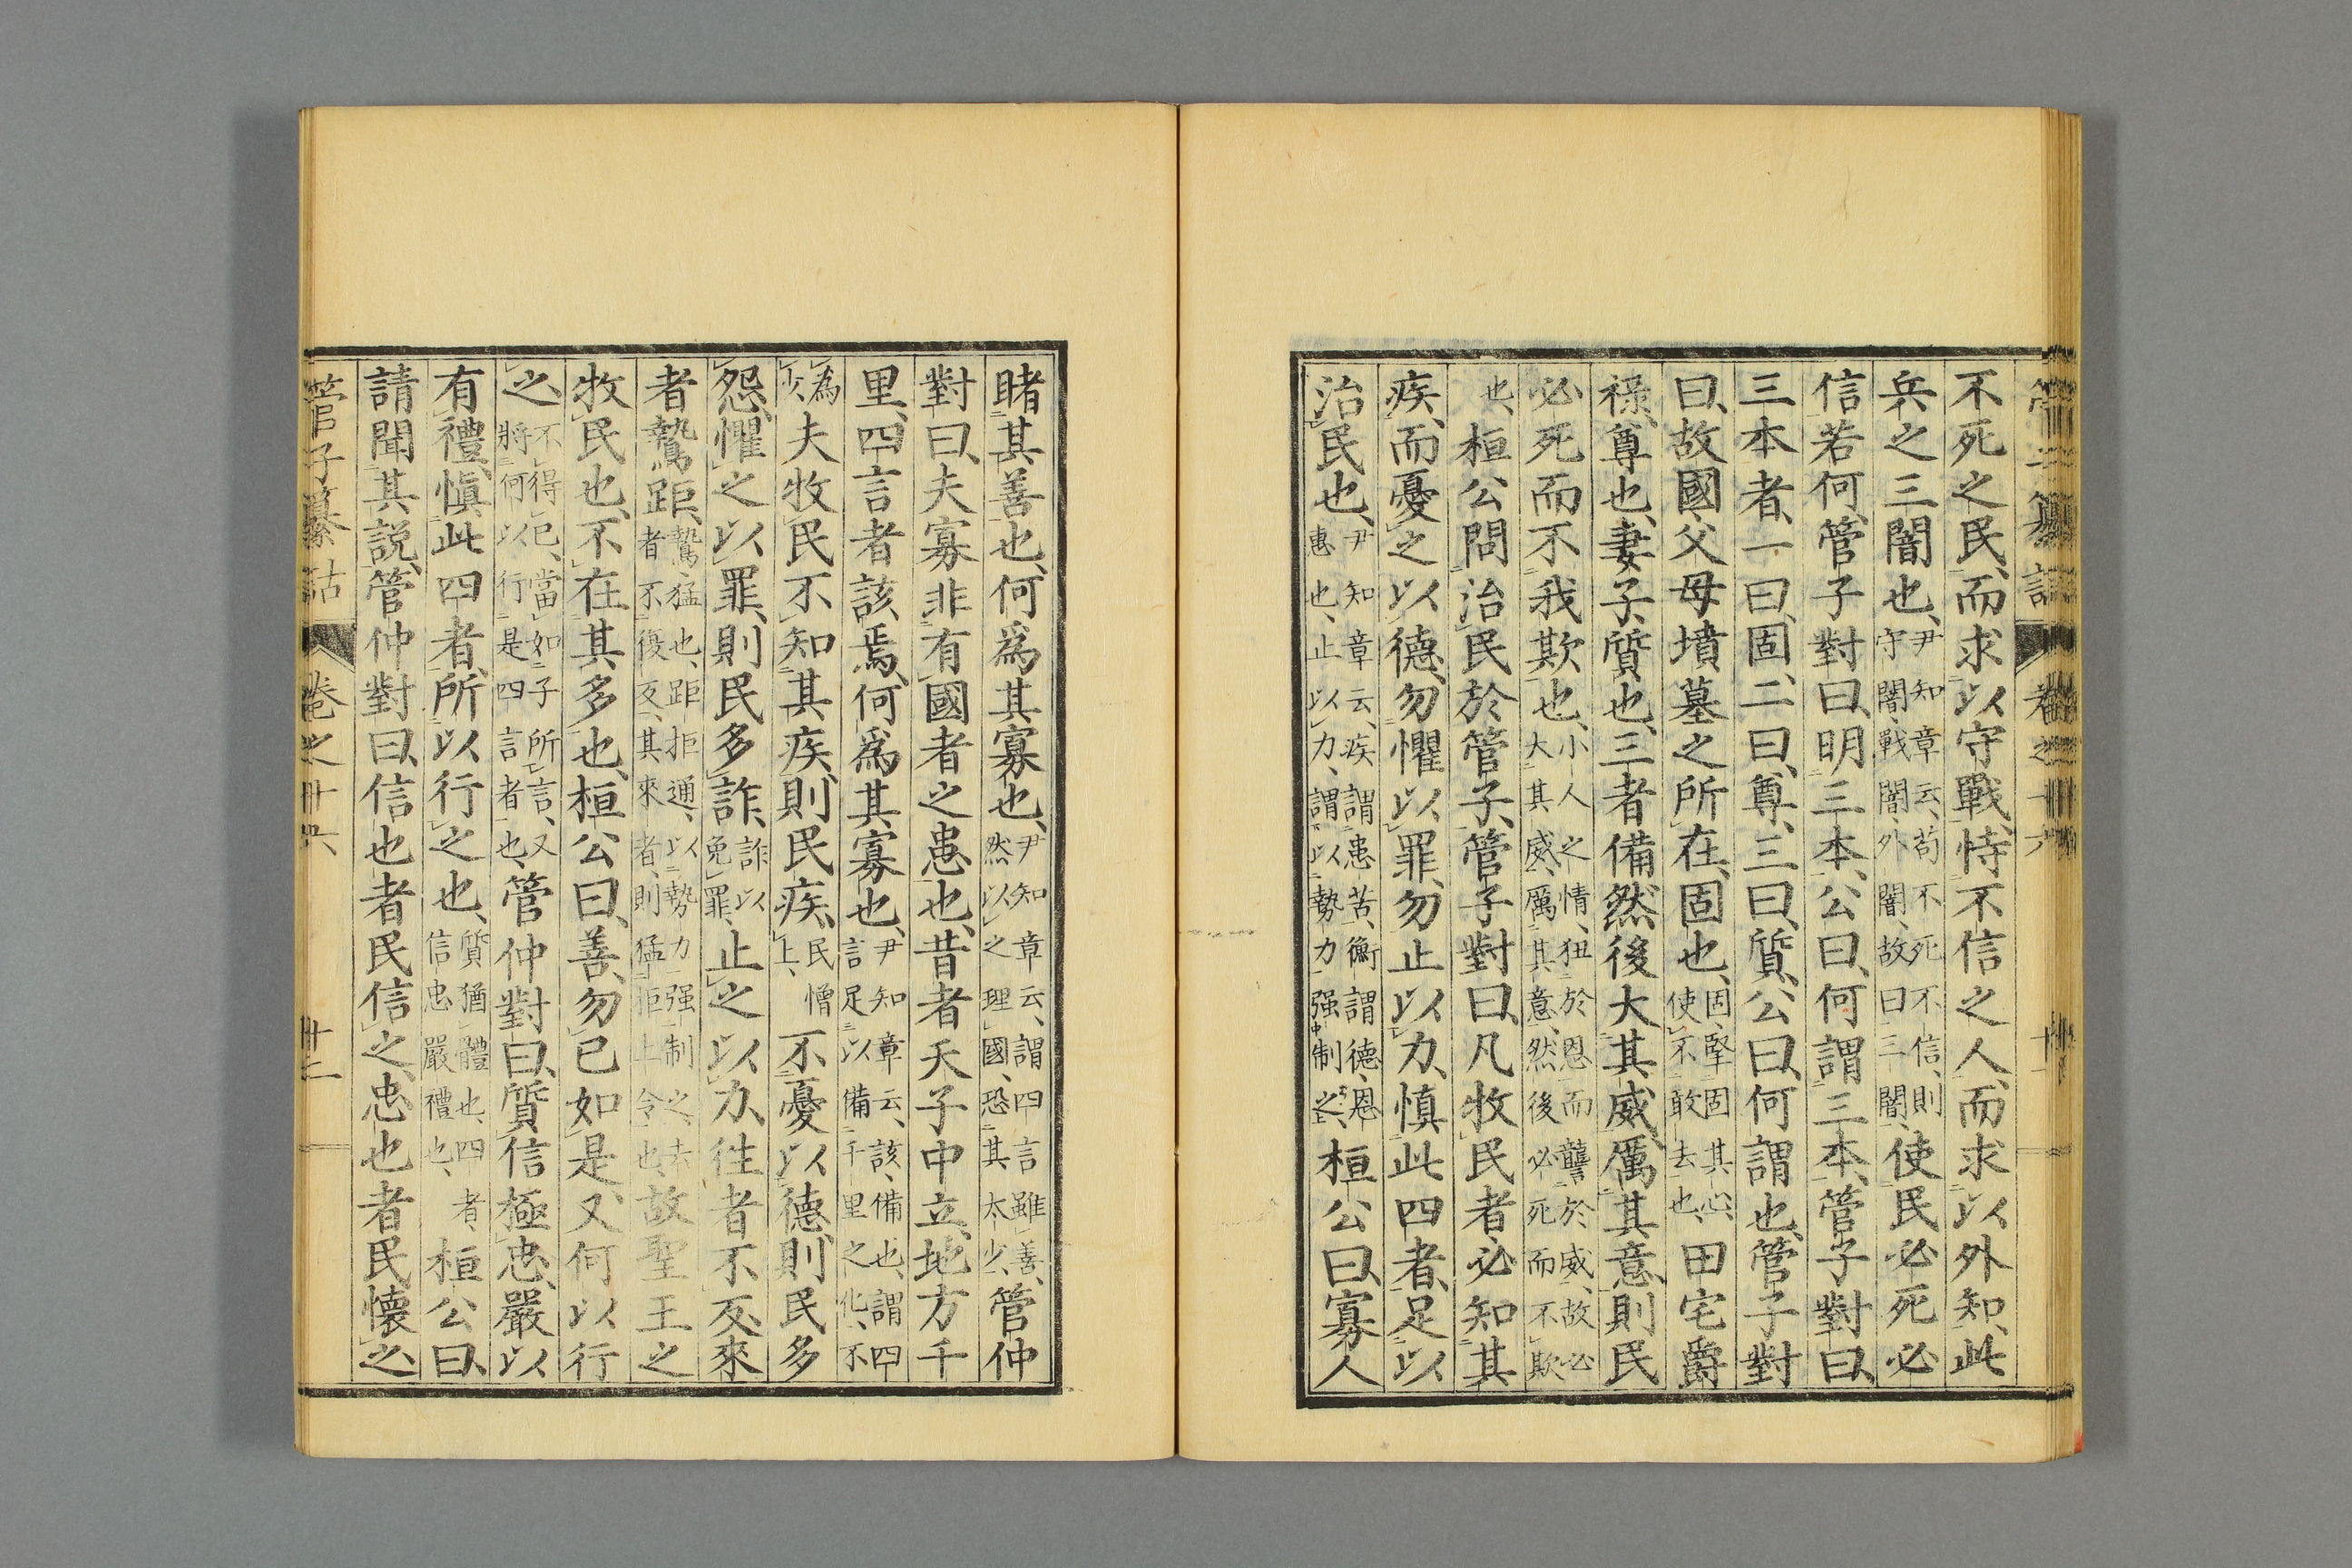 不死之民、而求以守戰、恃不信之人、而求以外知、此
兵之三闇也、尹知章云、苟不死不信、則守闇、戰闇、外闇、故曰三闇、使民必死必
信、若何、管子對曰、明三本、公曰、何謂三本、管子對曰、
三本者、一曰、固、二曰、尊、三曰、質、公曰、何謂也、管子對
曰、故國父母墳墓之所在、固也、固、堅固其心、使不敢去也、田宅爵
祿、尊也、妻子、質也、三者備、然後大其威、厲其意、則民
必死而不我欺也、小人之情、狃於恩而讋於威、故必大其威、厲其意、然後必死而不欺
也、桓公問治民於管子、管子對曰、凡牧民者、必知其
疾、而憂之以德、勿懼以罪、勿止以力、慎此四者、足以
治民也、尹知章云、疾謂患苦、衡謂德、恩惠也、止以力、謂以勢力强制之、桓公曰、寡人
睹其善也、何爲其寡也、尹知章云、謂四言雖善、然以之理國、恐其太少、管仲
對曰、夫寡非有國者之患也、昔者天子中立、地方千
里、四言者該焉、何爲其寡也、尹知章云、該、備也、謂四言足以備千里之化、不
為少、夫牧民不知其疾、則民疾、民憎上、不憂以德、則民多
怨、懼之以罪、則民多詐、詐以免罪、止之以力、往者不反、來
者鷙距、鷙、猛也、距拒通、以勢力强制之、去者不復反、其來者、則猛拒上令也、故聖王之
牧民也、不在其多也、桓公曰、善、勿已如是、又何以行
之、不得已、當如子所言、又將何以行是四言者也、管仲對曰、質信極忠、嚴以
有禮、慎此四者、所以行之也、質猶體也、四者、信忠嚴禮也、桓公曰、
請聞其説、管仲對曰、信也者民信之、忠也者民懷之、
管子纂詁 卷之十六 十二